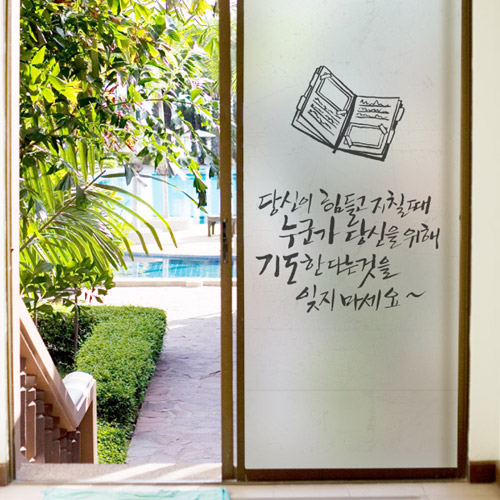 당신이 힘들고 지칠때
누군가 당신을 위해
기도한다는것을
잊지마세요~